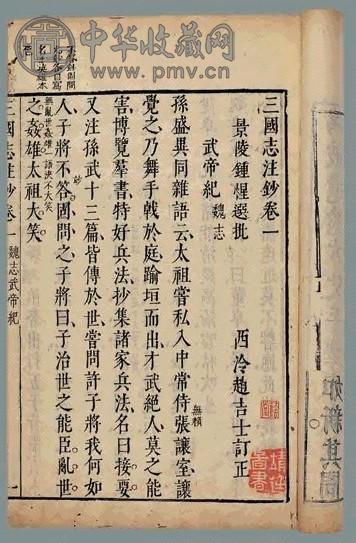 中华收藏网
www.pmv.cn
三國志注鈔卷一
景陵鍾惺選批
西泠趙吉士訂正
武帝紀 魏志
孫盛異同雜語云太祖嘗私入中常侍張讓室讓
無賴
覺之乃舞手戟於庭踰垣而出才武絕人莫之能
害博覽羣書特好兵法抄集諸家兵法名曰接要
又注孫武十三篇皆傳於世嘗問許子將我何如
人子將不答固問之子將曰子治世之能臣亂世
無亂世姦雄一語決不大笑
之姦雄太祖大笑
三國志注鈔卷一 魏志武帝紀 一
如新其間
圖書